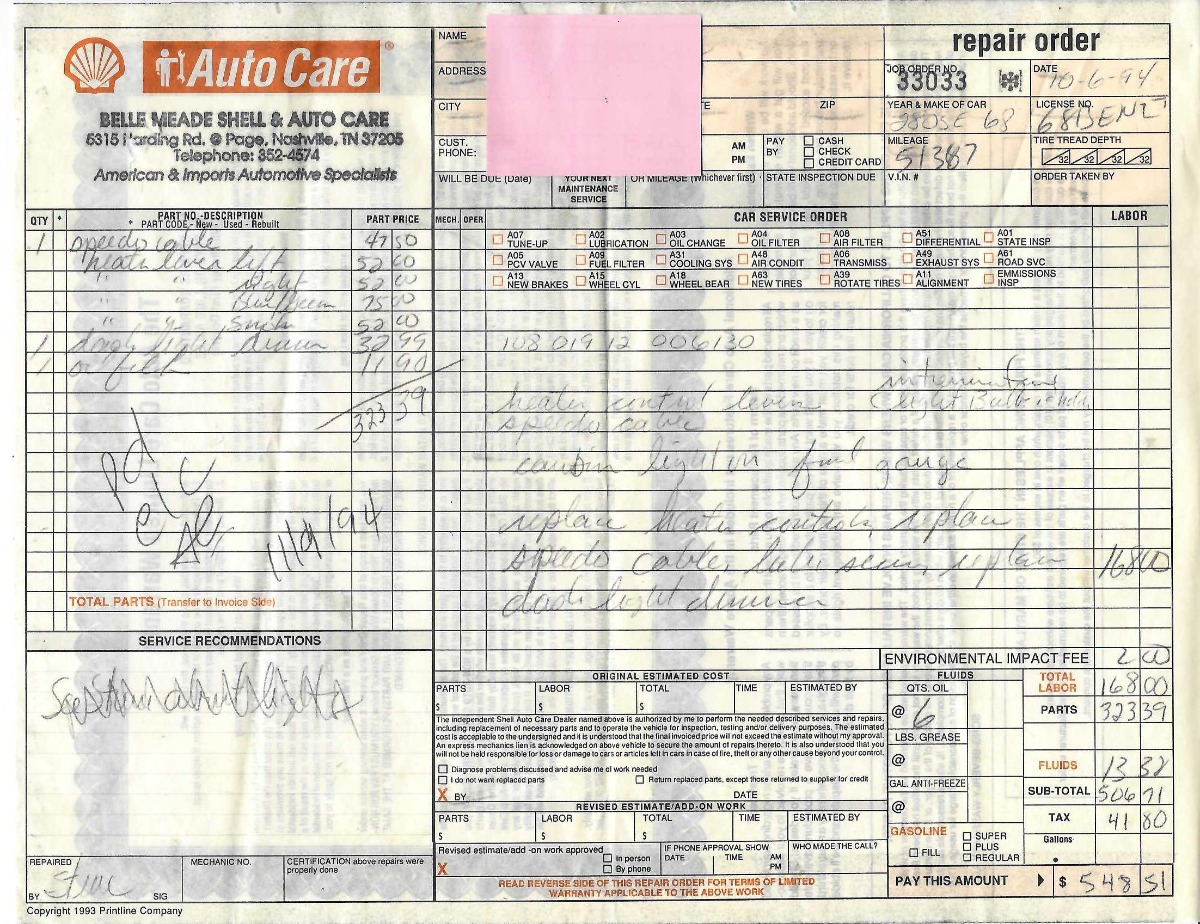 Auto Care®
BELLE MEADE SHELL & AUTO CARE
5315 Harding Rd. @ Page, Nashville, TN 37205
Telephone: 352-4574
American & Imports Automotive Specialists
NAME
ADDRESS
CITY
ZIP
CUST. PHONE:
AM
PM
PAY BY
CASH
CHECK
CREDIT CARD
WILL BE DUE (Date)
YOUR NEXT MAINTENANCE SERVICE
OR MILEAGE (Whichever first)
STATE INSPECTION DUE
repair order
JOB ORDER NO.
33033
DATE
10-6-94
YEAR & MAKE OF CAR
280SE 68
LICENSE NO.
MILEAGE
51387
TIRE TREAD DEPTH
32 32 32 32
V.I.N. #
ORDER TAKEN BY
QTY * PART NO.-DESCRIPTION PART PRICE
* PART CODE - New - Used - Rebuilt
1 speedo cable 47 50
heater lever left 52 00
" " Right 52 00
75 00
" " 52 00
1 dash light dimmer 32 99
1 oil filter 11 90
323 39
pd
11/9/94
TOTAL PARTS (Transfer to Invoice Side)
MECH. OPER. CAR SERVICE ORDER LABOR
A07 TUNE-UP
A02 LUBRICATION
A03 OIL CHANGE
A04 OIL FILTER
A08 AIR FILTER
A51 DIFFERENTIAL
A01 STATE INSP
A05 PCV VALVE
A09 FUEL FILTER
A31 COOLING SYS
A48 AIR CONDIT
A06 TRANSMISS
A49 EXHAUST SYS
A61 ROAD SVC
A13 NEW BRAKES
A15 WHEEL CYL
A18 WHEEL BEAR
A63 NEW TIRES
A39 ROTATE TIRES
A11 ALIGNMENT
EMMISSIONS INSP
108 019 12 006130
heater control levers (light Bulb
speedo cable
light on fuel gauge
replace heater controls, replace
speedo cable, lube service, replace 168 00
dash light dimmer
SERVICE RECOMMENDATIONS
REPAIRED BY
SIG
MECHANIC NO.
CERTIFICATION above repairs were properly done
Copyright 1993 Printline Company
ORIGINAL ESTIMATED COST
PARTS $
LABOR $
TOTAL $
TIME
ESTIMATED BY
The independent Shell Auto Care Dealer named above is authorized by me to perform the needed described services and repairs,
including replacement of necessary parts and to operate the vehicle for inspection, testing and/or delivery purposes. The estimated
cost is acceptable to the undersigned and it is understood that the final invoiced price will not exceed the estimate without my approval.
An express mechanics lien is acknowledged on above vehicle to secure the amount of repairs thereto. It is also understood that you
will not be held responsible for loss or damage to cars or articles left in cars in case of fire, theft or any other cause beyond your control.
Diagnose problems discussed and advise me of work needed
I do not want replaced parts
Return replaced parts, except those returned to supplier for credit
X BY
DATE
REVISED ESTIMATE/ADD-ON WORK
PARTS $
LABOR $
TOTAL $
TIME
ESTIMATED BY
Revised estimate/add -on work approved
X
In person
By phone
IF PHONE APPROVAL SHOW
DATE TIME AM PM
WHO MADE THE CALL?
READ REVERSE SIDE OF THIS REPAIR ORDER FOR TERMS OF LIMITED
WARRANTY APPLICABLE TO THE ABOVE WORK
ENVIRONMENTAL IMPACT FEE 2 00
FLUIDS
QTS. OIL
@ 6
LBS. GREASE
@
GAL. ANTI-FREEZE
@
GASOLINE
FILL
SUPER
PLUS
REGULAR
TOTAL LABOR 168 00
PARTS 323 39
FLUIDS 13 32
SUB-TOTAL 506 71
TAX 41 80
Gallons
PAY THIS AMOUNT $ 548 51